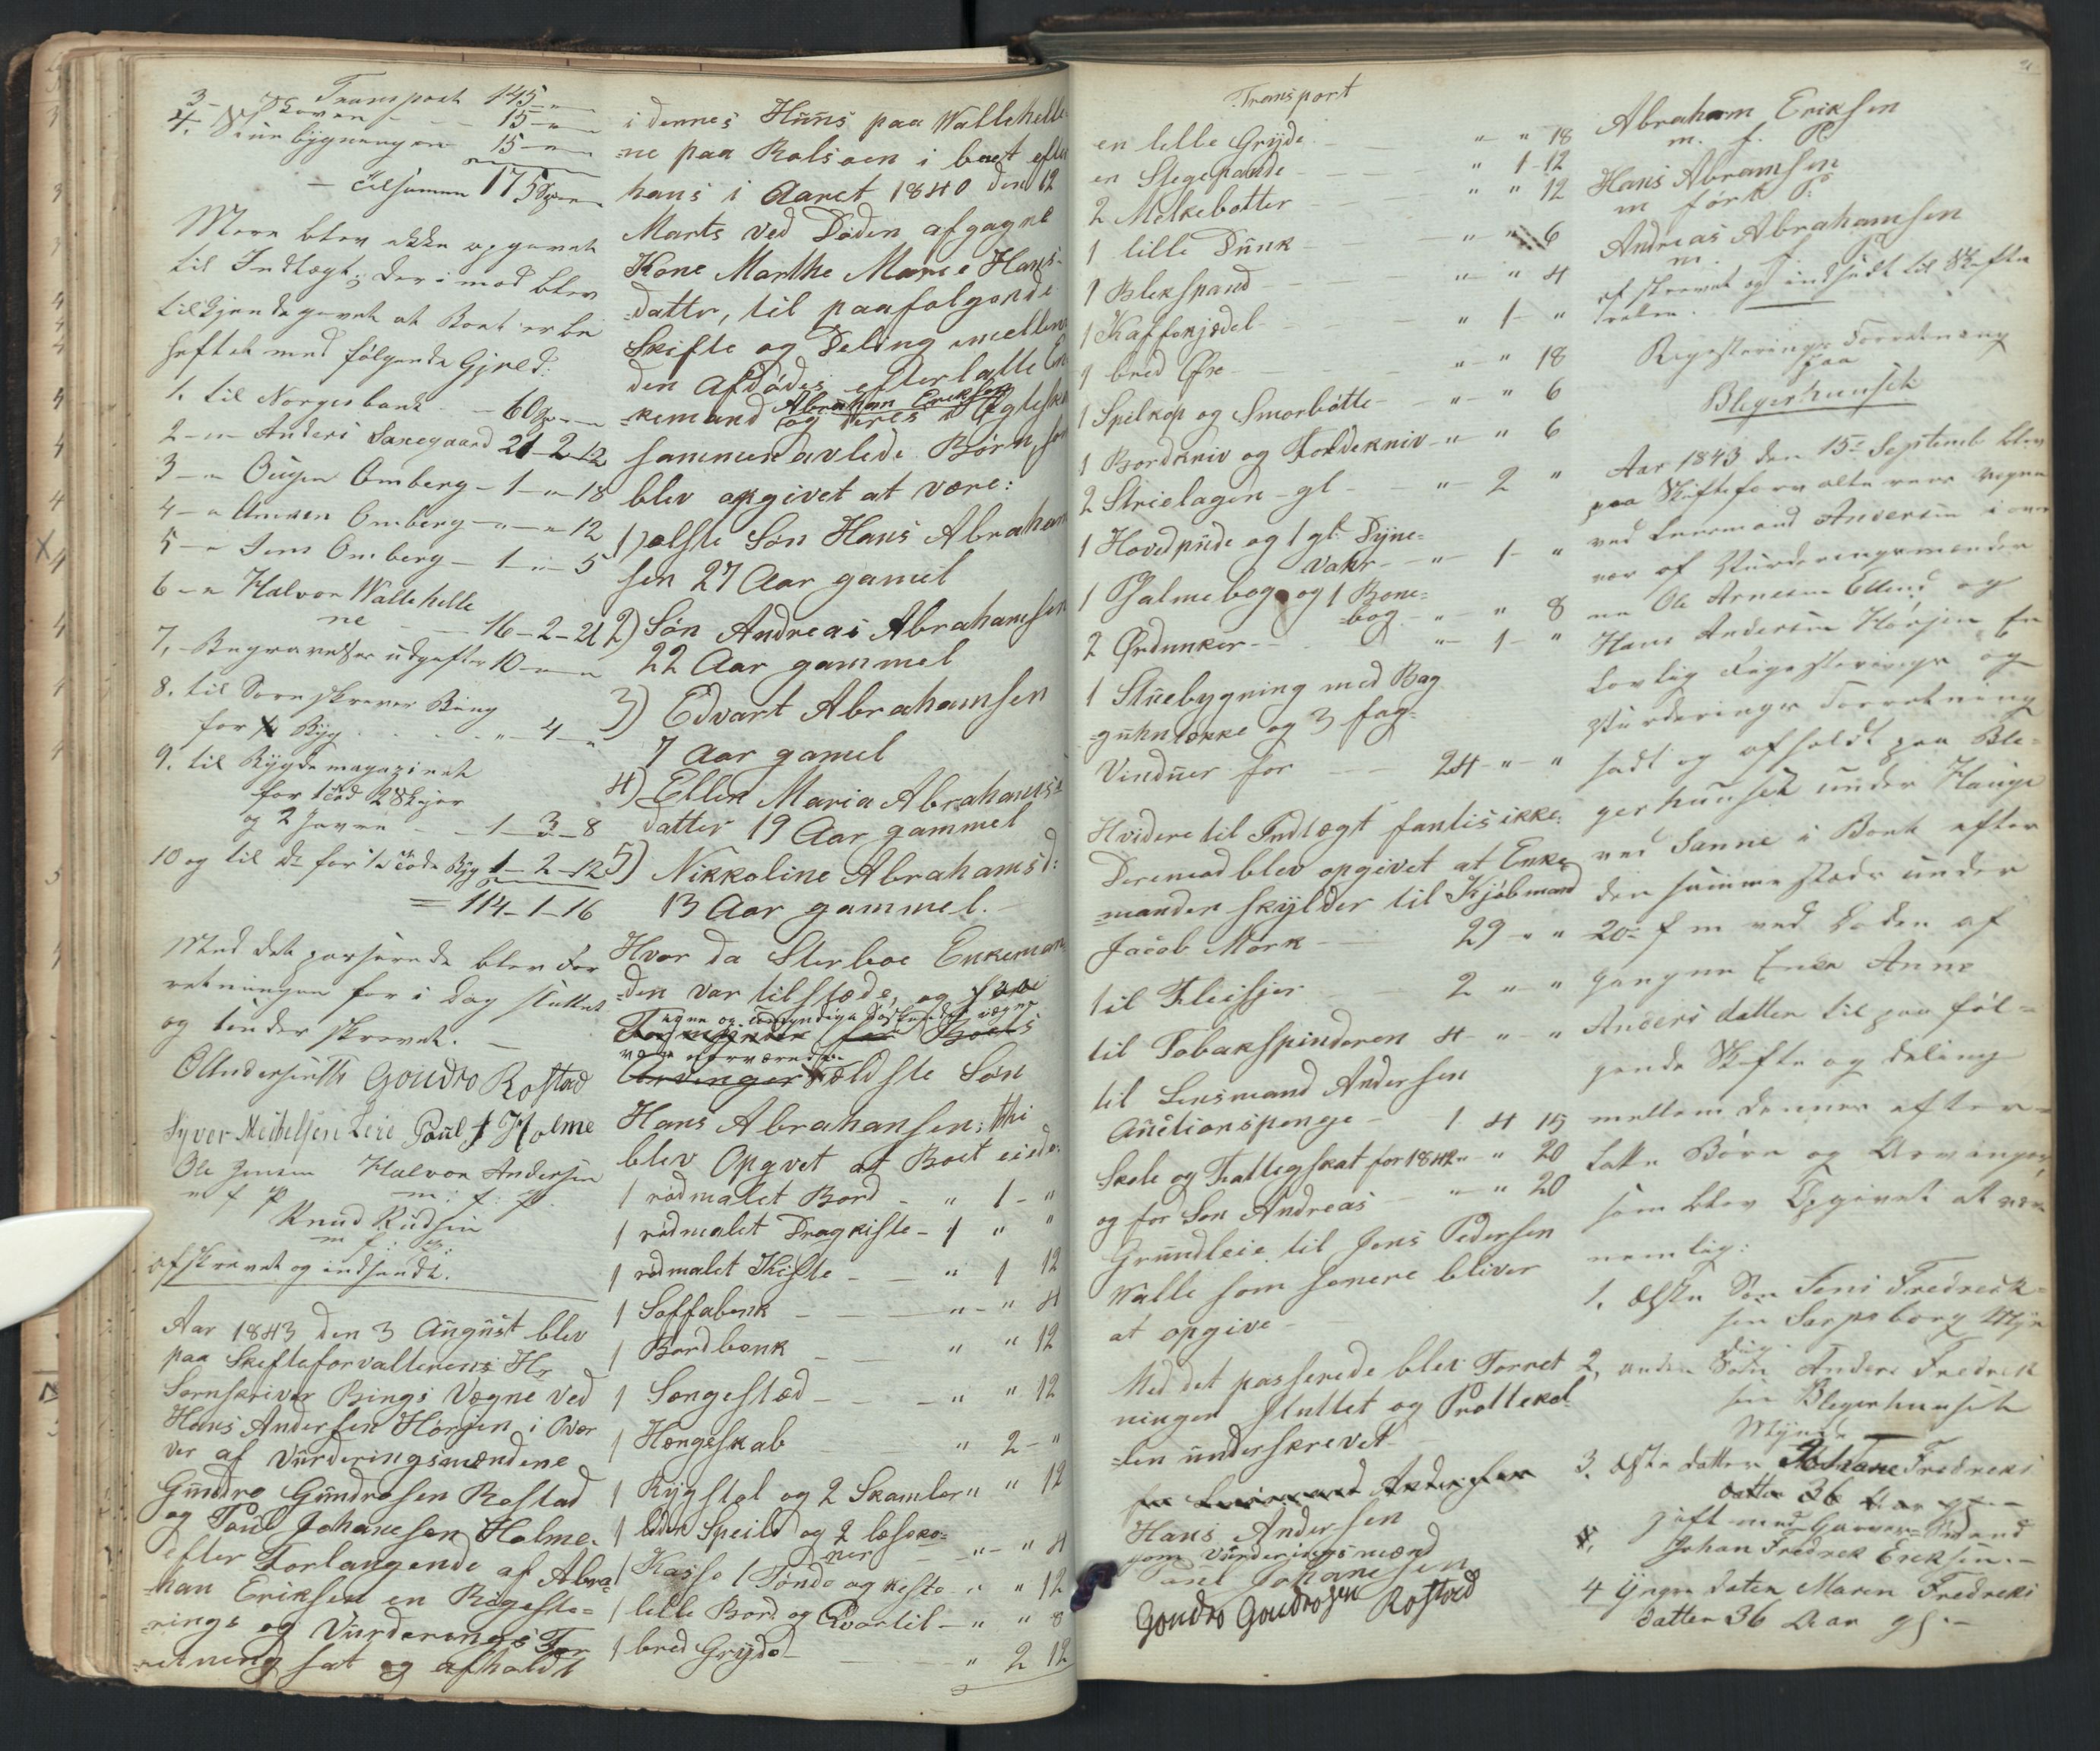 Transport 145
3 - Skoven - - 15
4. Stuebygningen 15
- tilsamen 175
Mere blev ikke opgivet
til Indtægt; der i mod blev
tilkjendegivet at Boet er be
heftet med følgende Gjæld:
1. til Norgesbank - 60
2 - Anders Sanegaard 21-2-12
3 - Omberg - 1-"-18
4 - Omberg - "-"-12
5 - Jens Omberg - 1-"-5
6 - Halvor Wallehelle
ne - 16-2-21
7, - Begravelses udgifter 10
8. til Sorenskriver Bing
for Byg - - 4
9. til Bygdemagazinet
for
og 2 - 1-3-8
10 og til do for Byg 1-2-12
= 114-1-16
Med det passerede blev For
retningen for i Dag sluttet
og under skrevet. -
Goudro Rostad
Syver Michelsen Poul J Holme
Ole Jensen Halvor Andersen
m f P m: f: P.
Knud
m f: P:
afskrevet og indsendt.
Aar 1843 den 3 August blev
paa Skifteforvalterens Hr
Sornskriver Bings Vægne ved
Hans Andersen Hörjen i Over
ver af Vurderingsmændene
Gundro Gundrosen Rostad
og Poul Johanesen Holme.
efter Forlangende af Abra-
han Eriksen en Rigeste=
-rings og Vurderings For
retning sat og afholdt
i dennes Huus paa Wallehelle
-ne paa Rolsøen i boet efter
hans i Aaret 1840 den 12
Marts ved Døden afgagne
Kone Marthe Marie Hans-
datter, til paafølgende
Skifte og Deling imellem
den Afdødes efterlatte En
Abraham Eriksen
-kemand og deres i Egteska
sammenavlede Børn, som
blev opgivet at være:
1) ælste Søn Hans Abraham
sen 27 Aar gamel
2) Søn Andreas Abrahamsen
22 Aar gammel
3) Edvart Abrahamsen
7 Aar gamel
4) Ellen Maria Abrahams-
datter 19 Aar gammel
5) Nikkoline Abrahamsd:
13 Aar gammel. -
Hvor da Sterboe Enkeman
den var tilstæde, og
egne og vægne
Boets
Arvinger ældste Søn
Hans Abrahansen; thi
blev Opgvet at Boet eiede.
1 rödmalet Bord - " 1 - "
1 rödmalet Dragkiste - 1 " "
1 rödmalet Kiste - " 1 12
1 Soffabenk - " - " 4
1 Bordbænk " " 12
1 Sængestæd - - " " 12
1 Hængeskab " 2 - "
1 Rygstol og 2 Skamler " " 12
1 liden Speild og 2
" - " 4
1 Kasse 1 Tønde og kiste " " 12
1 lille Bord og Qvartil - " " 8
1 bred Gryde " 2 12
Transport
en lille Gryde " - " 18
en Stegepande " 1-12
2 Melkebøtter " " 12
1 lille Dunk - " - " 6
1 Blekspand - " - " 4
1 Kaffekjedel - " 1 - "
1 bred Øxe - " - " 18
1 Spilkop og Smorbøtte - " - " 6
1 Bordkniv og Foldekniv - " - " 6
2 Strielagen - gl - " - 2 "
1 Hovedpude og 1 gl: Dyne=
vahr - " - 1 - "
1 Psalmebog og 1 Bøne=
bog - " - " 8
2 Ørdunker - - " - 1 - "
1 Stuebygning med Bag
og 3 fag
Vinduer for - 24 - " - "
Hvidere til Indtægt fantis ikke:
Deremod blev opgivet at Enke
-manden skylder til Kjøbmand
Jacob Mørk - 29 - " "
til Fleisjer - 2 " - "
til Tobakspinderen 4 - " - "
til Lensmand Andersen
Auctionspenge - 1 4 15
Skole og Fattigskat for 1842 " - " 20
og for Søn Andreas - " - " 20
Grundleie til Jens Pedersen
Walle som senere bliver
at opgive -
Med det passerede blev Forret
ningen sluttet og Prottekol
-len underskrevet
Hans Andersen
som Vurderingsmænd
Poul Johanesen
Goudro Goudrosen Rostad
Abraham Eriksen
m. f. P
Hans Abramsen
m ført P:
Andreas Abrahamsen
m. f. P
af skrevet og indsendt til Skifte
retten.
Regesterings Forretning
paa
Blegerhuuset
Aar 1843 den 15de Septemb blev
paa Skifteforvalterens Vegne
ved Lensmand Andersen i over
vær af Vurderingsmænde
ne Ole Arnesen og
Hans Andersen Hörjen En
Lovlig Regesterings og
Vurderings Forretning
sadt og afholdt paa Ble=
gerhuuset under Hauge
ved Sanne i Boet efter
den sammesteds under
20de f m ved Døden af
gangne Enke Anne
Anders datter til paa føl=
gende Skifte og deling
mellem dennes efter=
latte Børn og Arvinger,
som blev Opgivet at være
nemlig:
1. ælste Søn Jens Fredrick=
sen Sarpsborg Myn
dig.
2, anden Søn Anders Fredrik
sen Blegerhuuset
Myndig
3. ælste datter Johane Fredriks
datter 36 Aar
gift med
Johan Fredrik Eriksen. -
4 yngre daten Maren Fredriks
datter 36 Aar gl. -